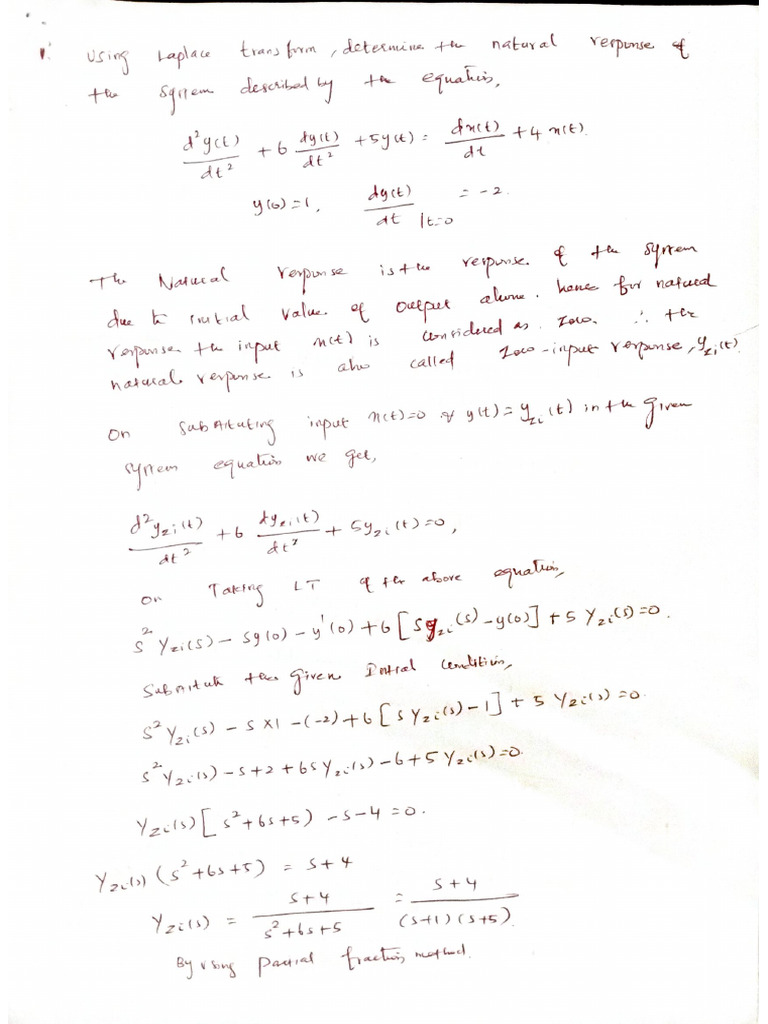 1. Using Laplace transform, determine the natural response of
the system described by the equation,
d²y(t)/dt² + 6 dy(t)/dt² + 5y(t) = dx(t)/dt + 4x(t).
y(0)=1, dy(t)/dt |t=0 = -2.
The Natural response is the response of the system
due to initial value of output alone. hence for natural
response the input x(t) is considered as zero. ∴ the
natural response is also called zero-input response, y_zi(t).
On substituting input x(t)=0 & y(t)=y_zi(t) in the given
system equation we get,
d²y_zi(t)/dt² + 6 dy_zi(t)/dt² + 5y_zi(t)=0,
on Taking LT of the above equation,
s² Y_zi(s) - sy(0) - y'(0) + 6[sy_zi(s) - y(0)] + 5 Y_zi(s)=0.
Substitute the given Initial condition,
s² Y_zi(s) - s×1 - (-2) + 6[s Y_zi(s) - 1] + 5 Y_zi(s)=0.
s² Y_zi(s) - s + 2 + 6s Y_zi(s) - 6 + 5 Y_zi(s)=0.
Y_zi(s)[s²+6s+5) - s - 4 = 0.
Y_zi(s) (s²+6s+5) = s+4
Y_zi(s) = s+4/s²+6s+5 = s+4/(s+1)(s+5).
By using partial fraction method.